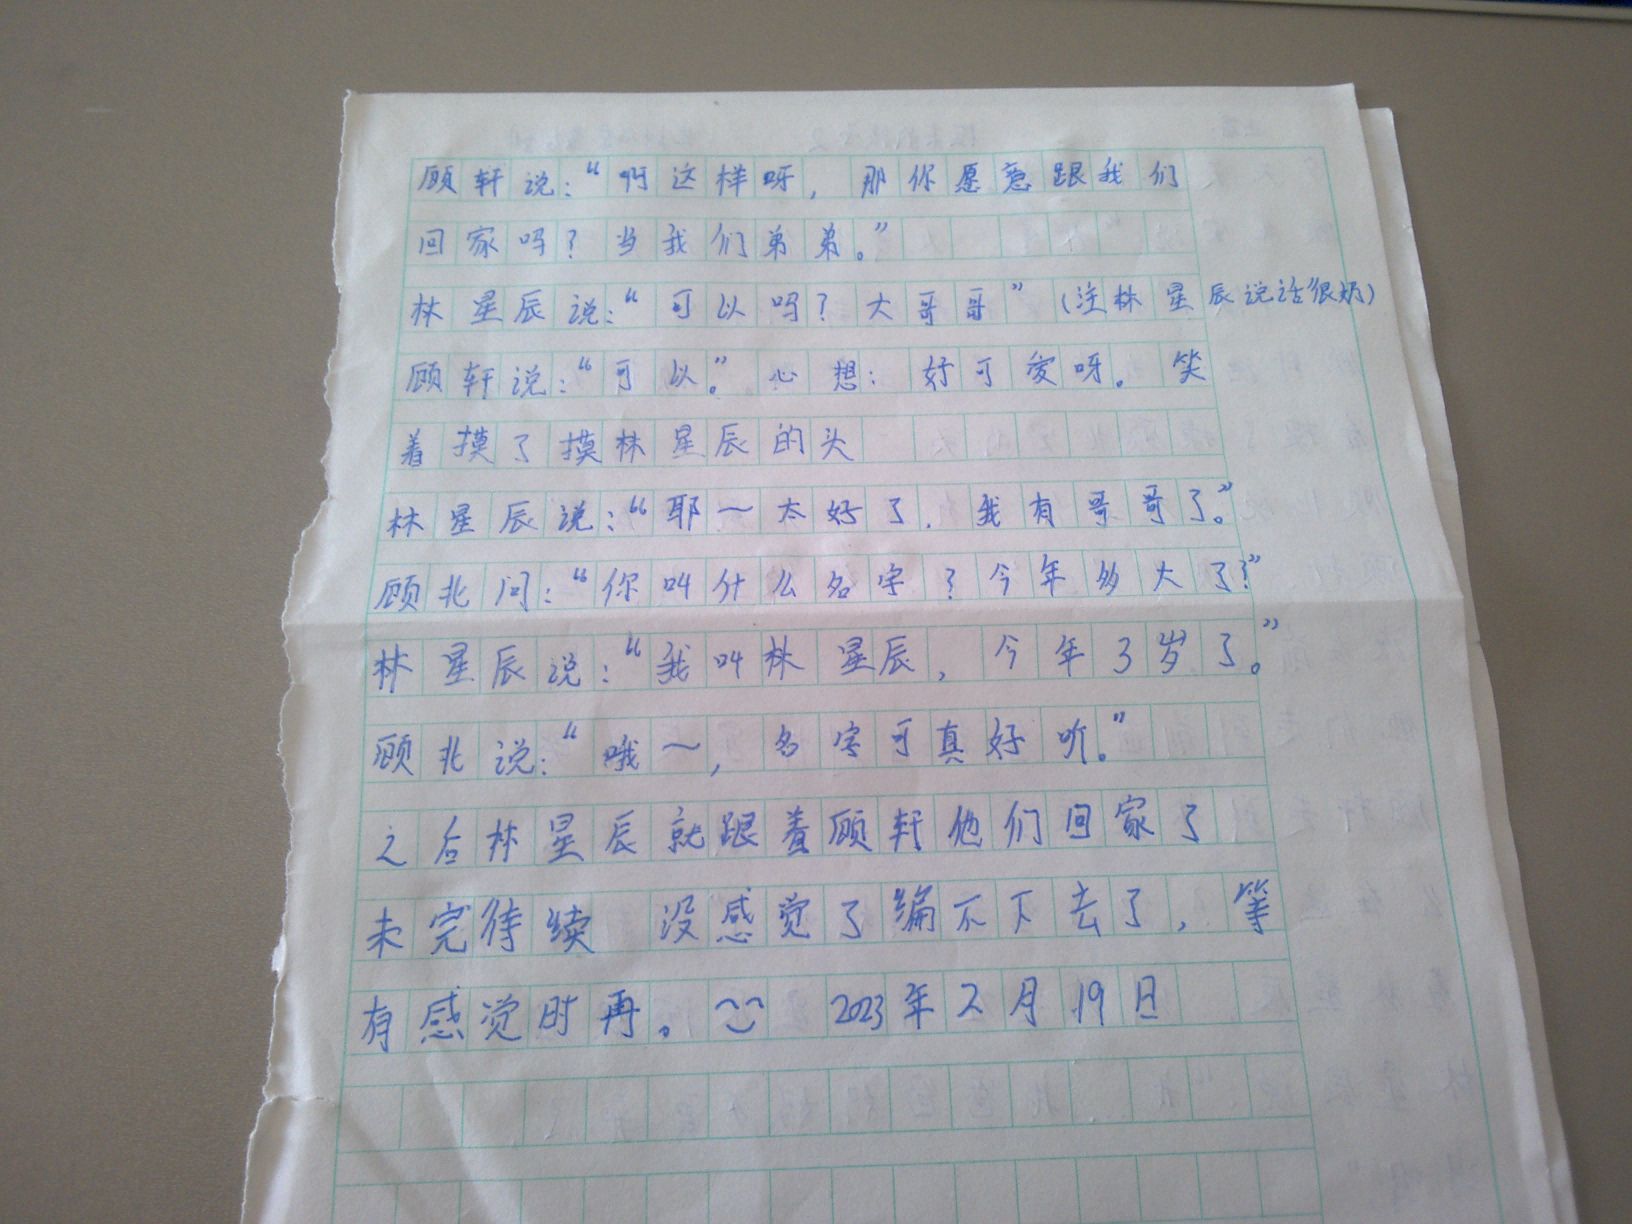 顾轩说：“啊这样呀，那你愿意跟我们
回家吗？当我们弟弟。”
林星辰说：“可以吗？大哥哥”（注林星辰说话“很奶）
顾轩说：“可以。”心想：好可爱呀。笑
着摸了摸林星辰的头
林星辰说：“耶～太好了，我有哥哥了。”
顾北问：“你叫什么名字？今年多大了？”
林星辰说：“我叫林星辰，今年3岁了。”
顾北说：“哦～，名字可真好听。”
之后林星辰就跟着顾轩他们回家了
未完待续 没感觉了编不下去了，等
有感觉时再。 2023年2月19日